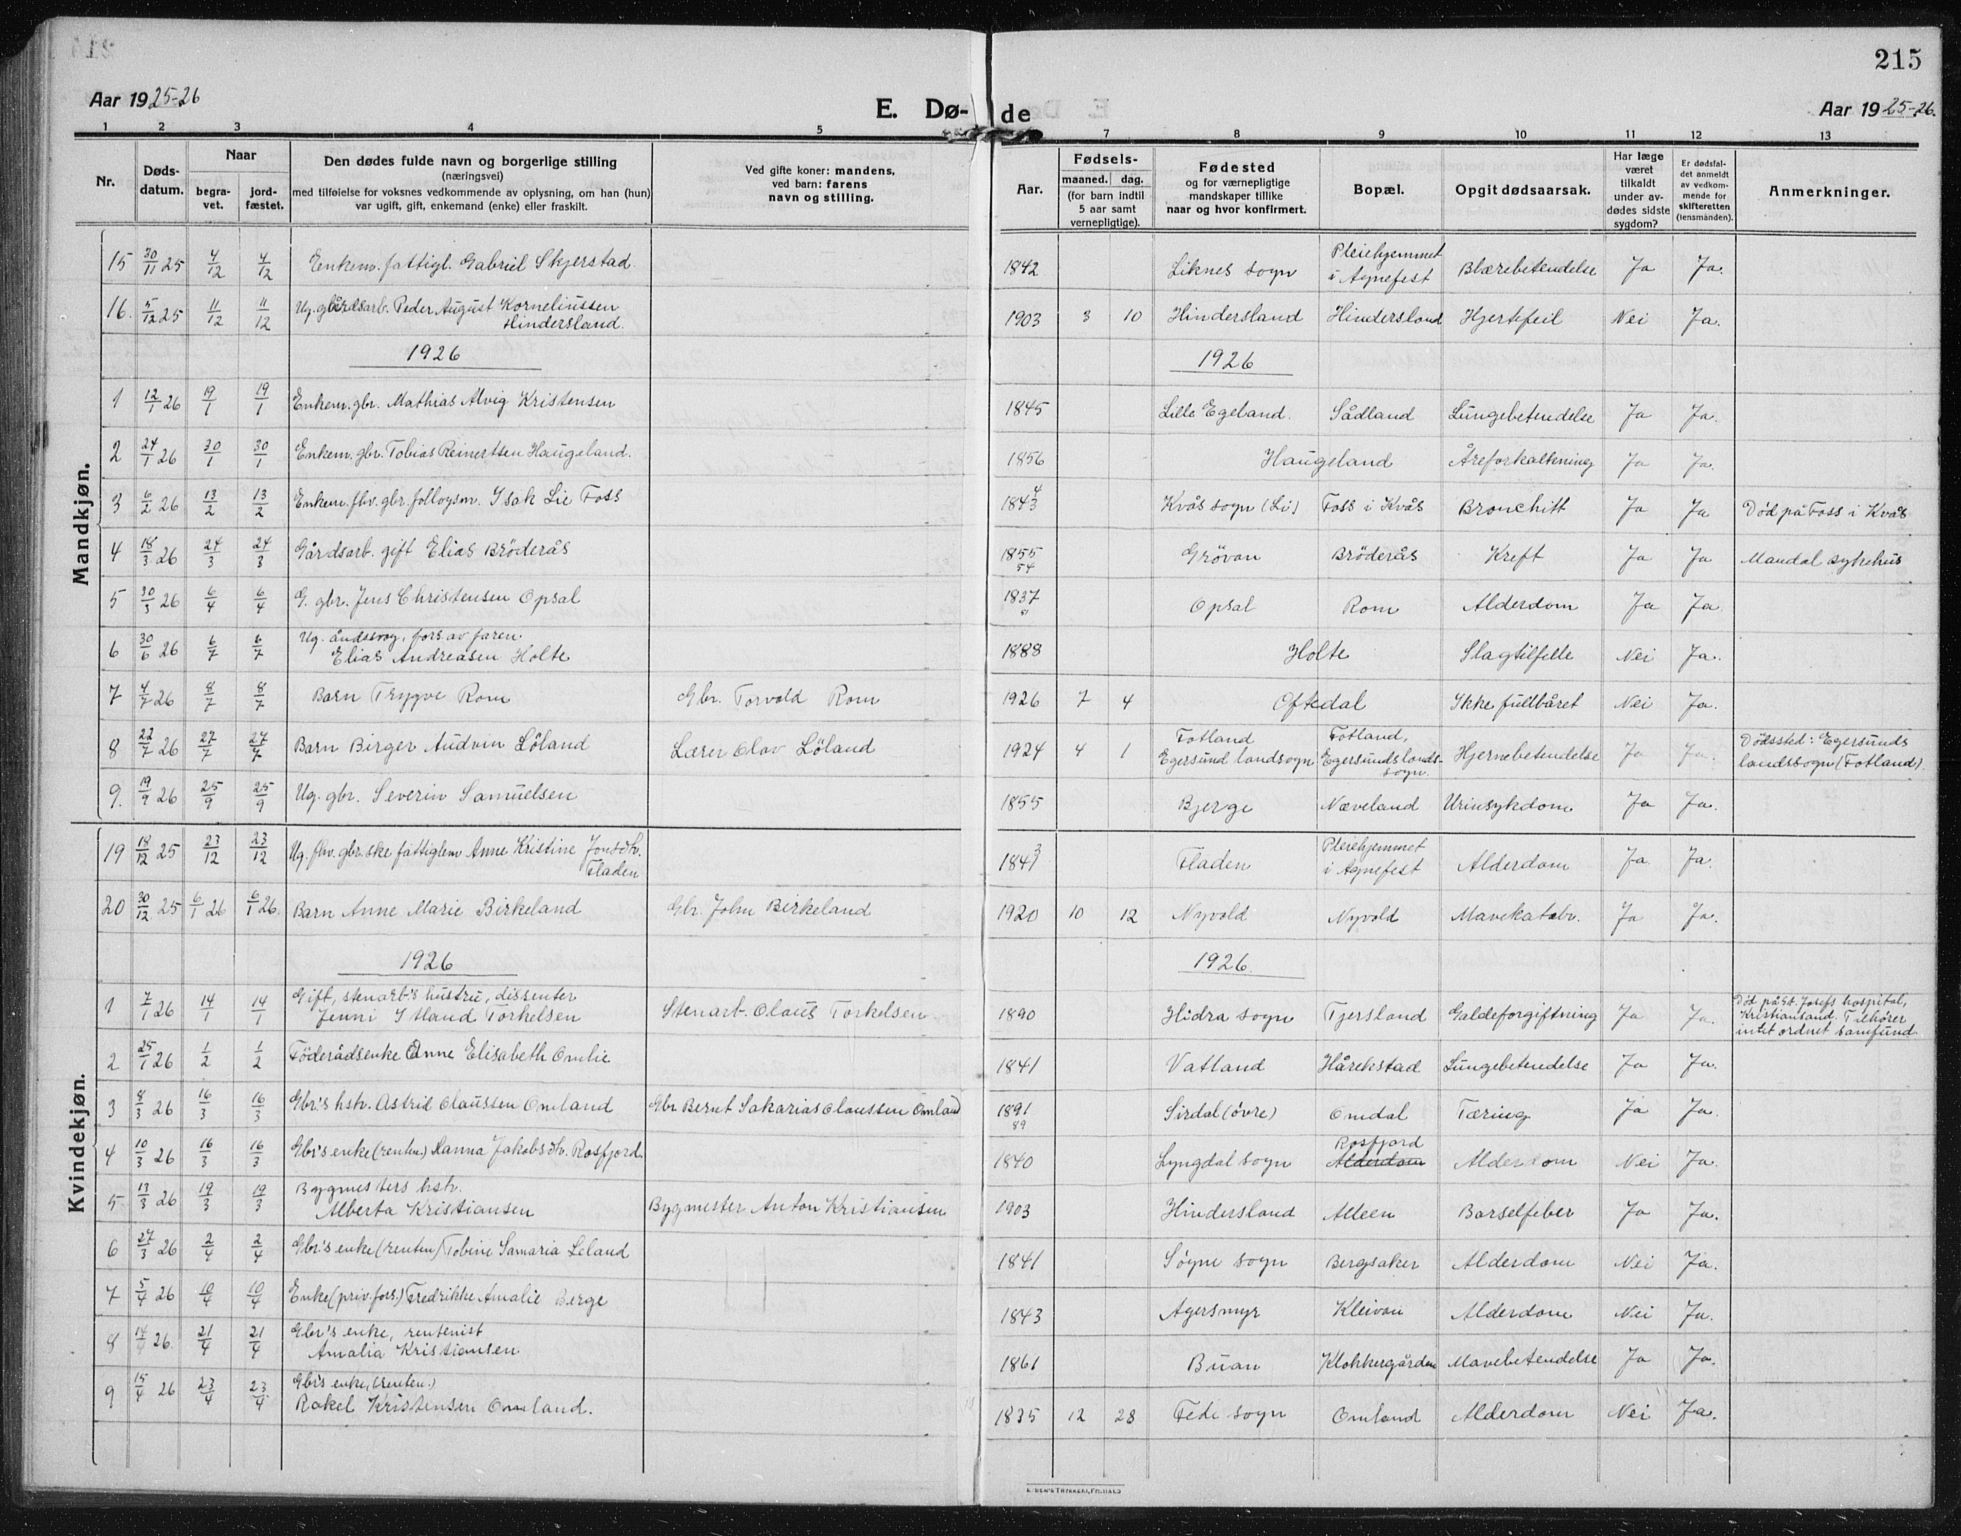 215
Aar 1925-26
E. Dø-
de
Aar 1925-26.
1 2 3 4 5 7 8 9 10 11 12 13
Nr.
Døds-
datum.
Naar
begra-
vet.
jord-
fæstet.
Den dødes fulde navn og borgerlige stilling
(næringsvei)
med tilføielse for voksnes vedkommende av oplysning, om han (hun)
var ugift, gift, enkemand (enke) eller fraskilt.
Ved gifte koner: mandens,
ved barn: farens
navn og stilling.
Aar.
Fødsels-
maaned. dag.
(for barn indtil
5 aar samt
vernepligtige).
Fødested
og for værnepligtige
mandskaper tillike
naar og hvor konfirmert.
Bopæl.
Opgit dødsaarsak.
Har læge
været
tilkaldt
under av-
dødes sidste
sygdom?
Er dødsfal-
det anmeldt
av vedkom-
mende for
skifteretten
(lensmanden).
Anmerkninger.
Mandkjøn.
15 30/11 25 4/12 4/12 Enkem. fattigl. Gabriel Skjerstad. 1842 Liknes sogn Pleiehjemmet i Agnefest Blærebetendelse Ja Ja.
16. 5/12 25 11/12 11/12 Ug. gårdsarb. Peder August Korneliussen Hindersland. 1903 3 10 Hindersland Hindersland Hjertefeil Nei Ja.
1926 1926
1 12/1 26 19/1 19/1 Enkem. gbr. Mathias Alvig Kristensen 1845 Lille Egeland. Sådland Lungebetendelse Ja Ja.
2 24/1 26 30/1 30/1 Enkem. gbr. Tobias Reinertsen Haugeland. 1856 Haugeland Åreforkaltening Ja Ja.
3 6/2 26 13/2 13/2 Enkem. fhv. gbr. Isak Lie Foss 1843 4 Kvås sogn (Li) Foss i Kvås Bronchitt Ja Ja Død på Foss i Kvås
4 18/3 26 24/3 24/3 Gårdsarb. gift Elias Bröderås 1855 54 Grövan Bröderås Kreft Ja Ja Mandal sykehus
5 30/3 26 6/4 6/4 G. gbr. Jens Christensen Opsal 1837 Opsal Rom Alderdom Ja Ja.
6 30/6 26 6/7 6/7 Ug. åndssvag, fors. av faren. Elias Andreasen Holte 1888 Holte Slagtilfelle Nei Ja.
7 4/7 26 8/7 8/7 Barn Trygve Rom Gbr. Torvald Rom 1926 7 4 Oftedal Ikke fullbåret Nei Ja.
8 22/7 26 27/7 27/7 Barn Birger Audvin Löland Lærer Olav Löland 1924 4 1 Fotland Egersund landsogn Fotland, Egersunds lands-sogn. Hjernebetendelse Ja Ja. Dødssted: Egersunds landssogn (Fotland).
9. 19/9 26 25/9 25/9 Ug. gbr. Severin Samuelsen 1855 Bjerge Næveland Urinsykdom Ja Ja.
Kvindekjøn.
19 18/12 25 23/12 23/12 Ug. fhv. gbr.ske fattiglem Anne Kristine Jonsdtr. Fladen 1841 3 Fladen Pleiehjemmet i Agnefest Alderdom Ja Ja.
20 30/12 25 6/1 26 6/1 26. Barn Anne Marie Birkeland Gbr. John Birkeland 1920 10 12 Nyvold Nyvold Mavekatarr. Ja Ja.
1926 1926
1 7/1 26 14/1 14/1 Gift, stenarb's hustru, dissenter Jenni Itland Torkelsen Stenarb. Olaus Torkelsen 1890 Hidra sogn Tjersland Galdeforgiftning Ja Ja. Død på St. Josefs hospital, Kristiansand. Tilhører intet ordnet samfund.
2 25/1 26 1/2 1/2 Föderådsenke Anne Elisabeth Omlie 1841 Vatland Hårekstad Lungebetendelse Ja Ja.
3 8/3 26 16/3 16/3 Gbr's hstr. Astrid Olaussen Omland Gbr Bernt Sakarias Olaussen Omland 1891 89 Sirdal (övre) Omdal Tæring Ja Ja.
4 10/3 26 16/3 16/3 Gbr's enke (renten.) Hanna Jakobsdtr. Rosfjord. 1840 Lyngdal sogn Rosfjord Alderdom Alderdom Nei Ja.
5 13/3 26 19/3 19/3 Bygmesters hstr. Alberta Kristiansen Bygmester Anton Kristiansen 1903 Hindersland Alleen Barselfeber Ja Ja.
6 27/3 26 2/4 2/4 Gbr's enke (renten) Tobine Samaria Leland 1841 Søgne sogn Bergsaker Alderdom Nei Ja.
7 5/4 26 10/4 10/4 Enke (priv. fors.) Fredrikke Amalie Berge 1843 Agersmyr Kleivan Alderdom Nei Ja.
8 14/4 26 21/4 21/4 Gbr's enke, rentenist Amalia Kristiansen 1861 Buan Klokkergården Mavebetendelse Ja Ja.
9 15/4 26 23/4 23/4 Gbr's enke, (renten.) Rakel Kristensen Omland. 1835 12 28 Fede sogn Omland Alderdom Nei Ja.